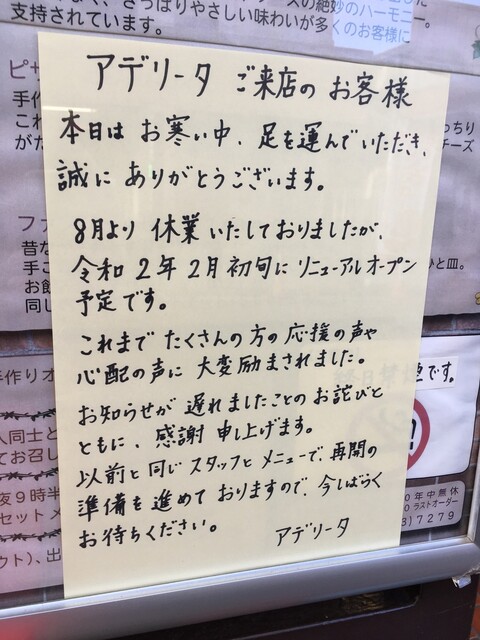 さっぱりやさしい味わいが多くのお客様に
の絶妙のハーモニー。
支持されています。
アデリータ ご来店の お客様
本日は お寒い中、足を運んでいただき、
誠に ありがとうございます。
8月より 休業 いたしておりましたが、
令和 2年 2月 初旬に リニューアルオープン
予定です。
これまで たくさんの方の 応援の声や
心配の声に 大変励まされました。
お知らせが 遅れましたことの お詫びと
ともに、感謝 申し上げます。
以前と同じ スタッフと メニューで、再開の
準備を進めて おりますので、今しばらく
お待ちください。
アデリータ
ピザ
手作
これ
がた
っちり
チーズ
ファ
昔な
手こ
お飲
同し
ひと皿。
手作りオ
人同士と
てお召し
夜9時半
セット メ
ウト)、出
です。
0年中無休
0ラストオーダー
3)7279